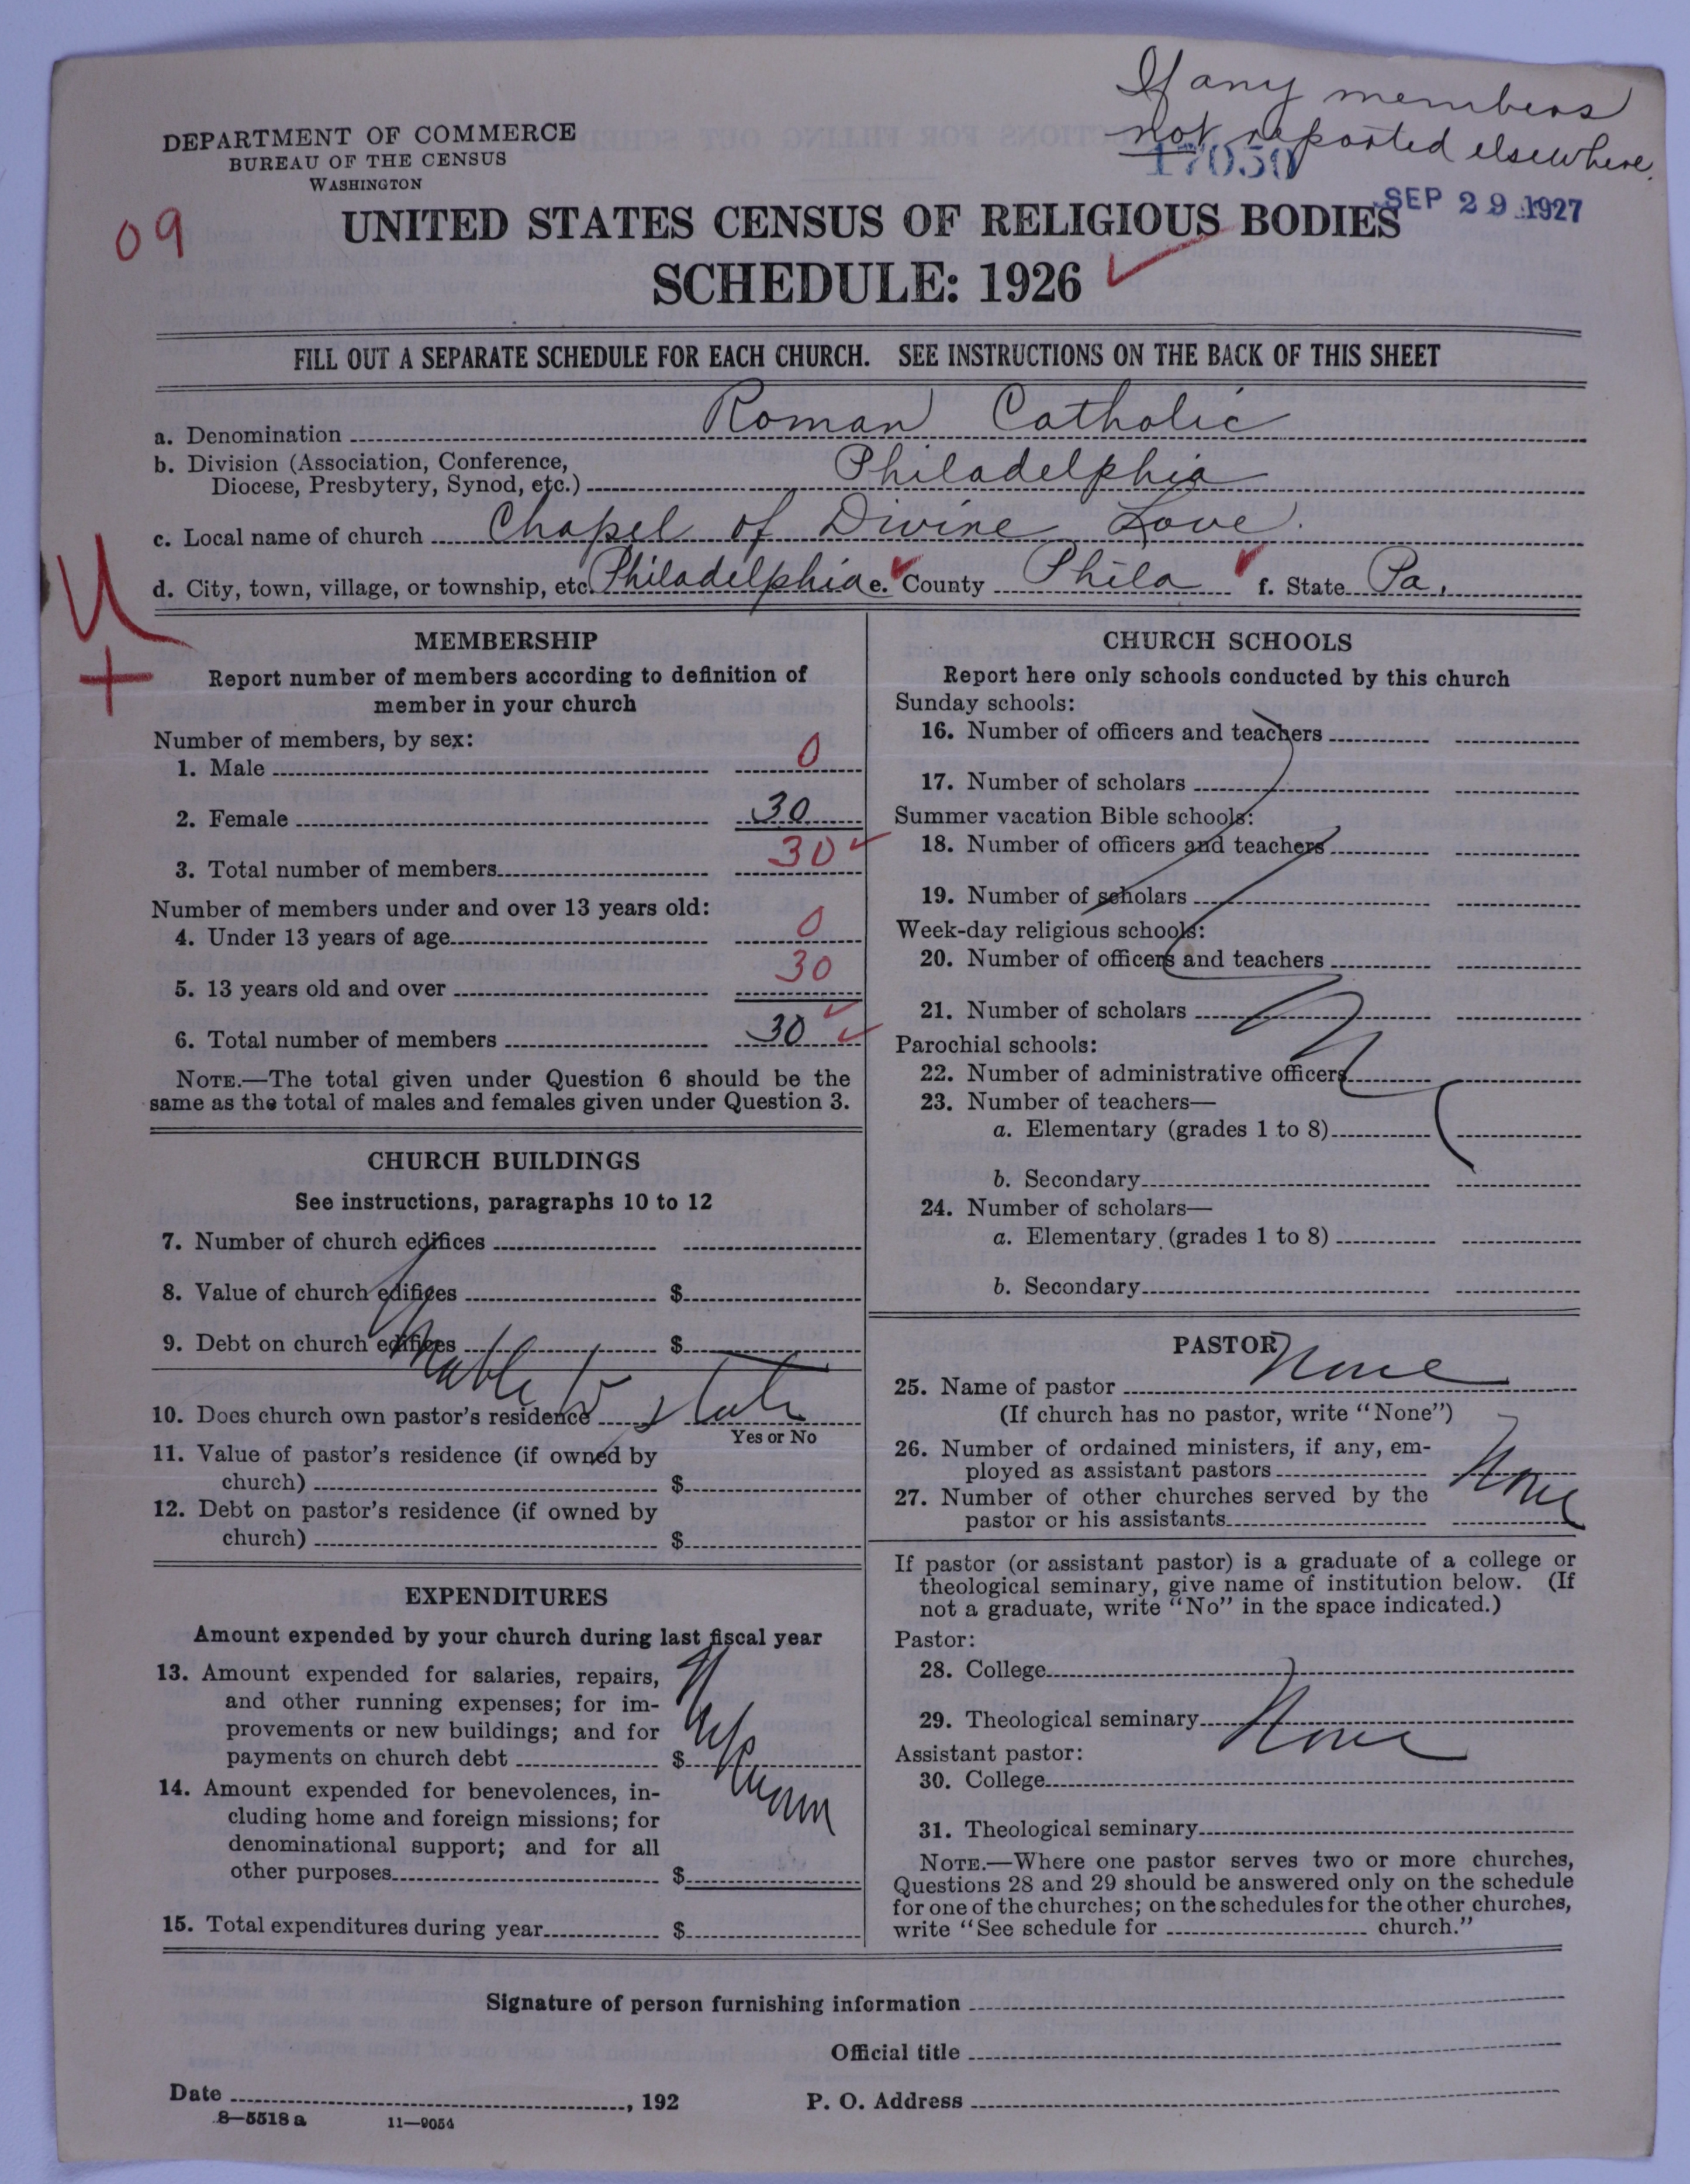 If any members
not reported elsewhere.
DEPARTMENT OF COMMERCE
BUREAU OF THE CENSUS
WASHINGTON
17050
SEP 29 1927
09
UNITED STATES CENSUS OF RELIGIOUS BODIES
SCHEDULE: 1926
FILL OUT A SEPARATE SCHEDULE FOR EACH CHURCH. SEE INSTRUCTIONS ON THE BACK OF THIS SHEET
a. Denomination Roman Catholic
b. Division (Association, Conference,
Diocese, Presbytery, Synod, etc.) Philadelphia
c. Local name of church Chapel of Divine Love.
d. City, town, village, or township, etc. Philadelphia e. County Phila f. State Pa.
MEMBERSHIP
Report number of members according to definition of
member in your church
Number of members, by sex:
1. Male 0
2. Female 30
3. Total number of members 30
Number of members under and over 13 years old:
4. Under 13 years of age 0
5. 13 years old and over 30
6. Total number of members 30
NOTE.—The total given under Question 6 should be the
same as the total of males and females given under Question 3.
CHURCH BUILDINGS
See instructions, paragraphs 10 to 12
7. Number of church edifices
8. Value of church edifices $
9. Debt on church edifices $
to state
10. Does church own pastor's residence
Yes or No
11. Value of pastor's residence (if owned by
church) $
12. Debt on pastor's residence (if owned by
church) $
EXPENDITURES
Amount expended by your church during last fiscal year
13. Amount expended for salaries, repairs,
and other running expenses; for im-
provements or new buildings; and for
payments on church debt $
14. Amount expended for benevolences, in-
cluding home and foreign missions; for
denominational support; and for all
other purposes $
15. Total expenditures during year $
CHURCH SCHOOLS
Report here only schools conducted by this church
Sunday schools:
16. Number of officers and teachers
17. Number of scholars
Summer vacation Bible schools:
18. Number of officers and teachers
19. Number of scholars
Week-day religious schools:
20. Number of officers and teachers
21. Number of scholars
Parochial schools:
22. Number of administrative officers
23. Number of teachers—
a. Elementary (grades 1 to 8)
b. Secondary
24. Number of scholars—
a. Elementary (grades 1 to 8)
b. Secondary
PASTOR
25. Name of pastor None
(If church has no pastor, write "None")
26. Number of ordained ministers, if any, em-
ployed as assistant pastors None
27. Number of other churches served by the
pastor or his assistants
If pastor (or assistant pastor) is a graduate of a college or
theological seminary, give name of institution below. (If
not a graduate, write "No" in the space indicated.)
Pastor:
28. College
29. Theological seminary None
Assistant pastor:
30. College
31. Theological seminary
NOTE.—Where one pastor serves two or more churches,
Questions 28 and 29 should be answered only on the schedule
for one of the churches; on the schedules for the other churches,
write "See schedule for church."
Signature of person furnishing information
Official title
Date , 192 P. O. Address
8—5518 a 11—9054